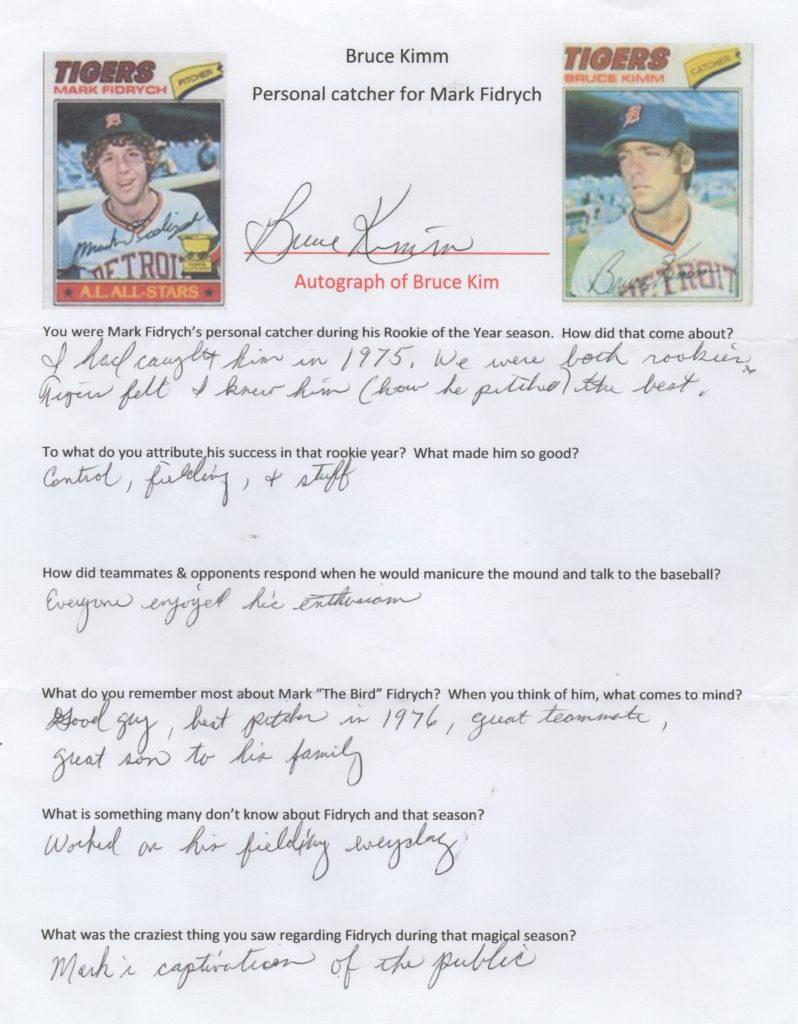 Bruce Kimm
Personal catcher for Mark Fidrych
TIGERS
MARK FIDRYCH
PITCHER
Mark Fidrych
DETROIT
TOPPS
★ A.L. ALL-STARS ★
TIGERS
BRUCE KIMM
CATCHER
Bruce Kimm
DETROIT
Bruce Kimm
Autograph of Bruce Kim
You were Mark Fidrych's personal catcher during his Rookie of the Year season. How did that come about?
I had caught him in 1975. We were both rookies.
Tigers felt I knew him (how he pitched) the best.
To what do you attribute his success in that rookie year? What made him so good?
Control, fielding, & stuff
How did teammates & opponents respond when he would manicure the mound and talk to the baseball?
Everyone enjoyed his enthusiasm
What do you remember most about Mark "The Bird" Fidrych? When you think of him, what comes to mind?
Good guy, best pitcher in 1976, great teammate,
great son to his family
What is something many don't know about Fidrych and that season?
Worked on his fielding everyday
What was the craziest thing you saw regarding Fidrych during that magical season?
Mark's captivation of the public